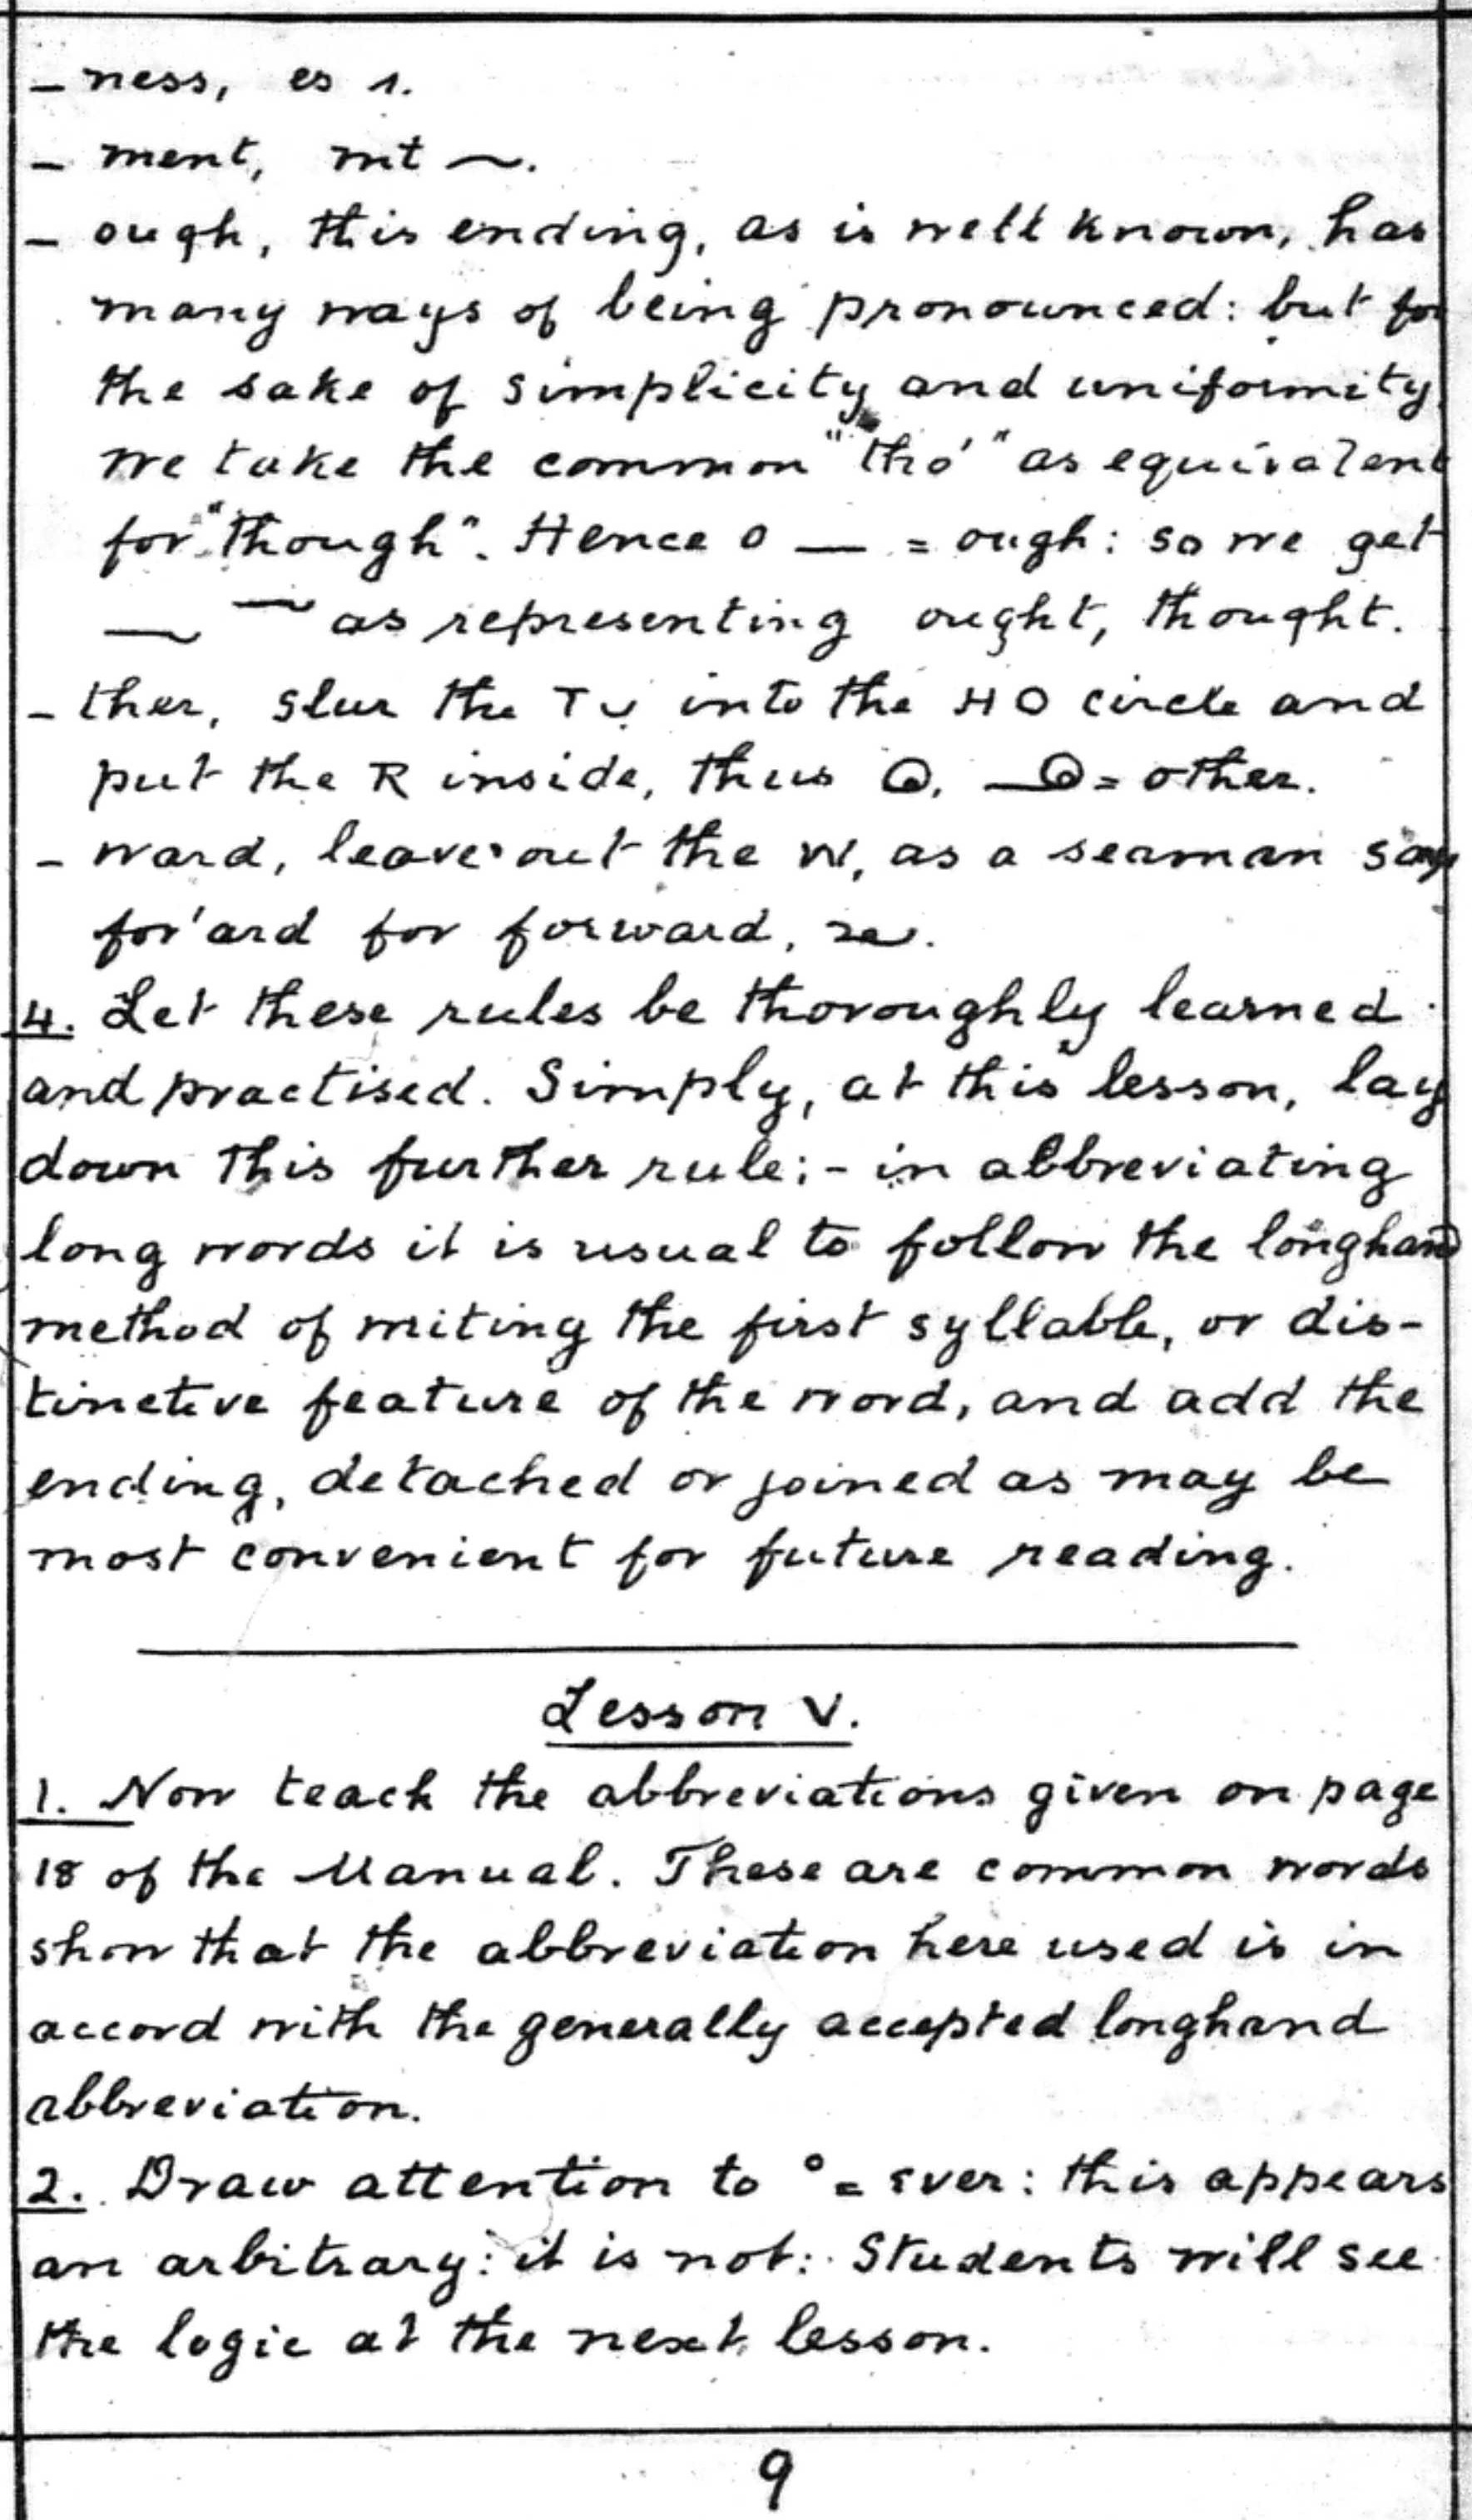 – ness, es 1.
– ment, mt ~.
– ough, this ending, as is well known, has
many ways of being pronounced: but for
the sake of simplicity and uniformity
we take the common "tho'" as equivalent
for "though". Hence o — = ough: so we get
as representing ought, thought.
– ther, slur the T ᴗ into the H O circle and
put the R inside, thus = other.
– ward, leave out the W, as a seaman says
for'ard for forward,
4. Let these rules be thoroughly learned
and practised. Simply, at this lesson, lay
down this further rule:- in abbreviating
long words it is usual to follow the longhand
method of writing the first syllable, or dis-
tinctive feature of the word, and add the
ending, detached or joined as may be
most convenient for future reading.
Lesson V.
1. Now teach the abbreviations given on page
18 of the Manual. These are common words
show that the abbreviation here used is in
accord with the generally accepted longhand
abbreviation.
2. Draw attention to ° = ever: this appears
an arbitrary: it is not: Students will see
the logic at the next lesson.
9